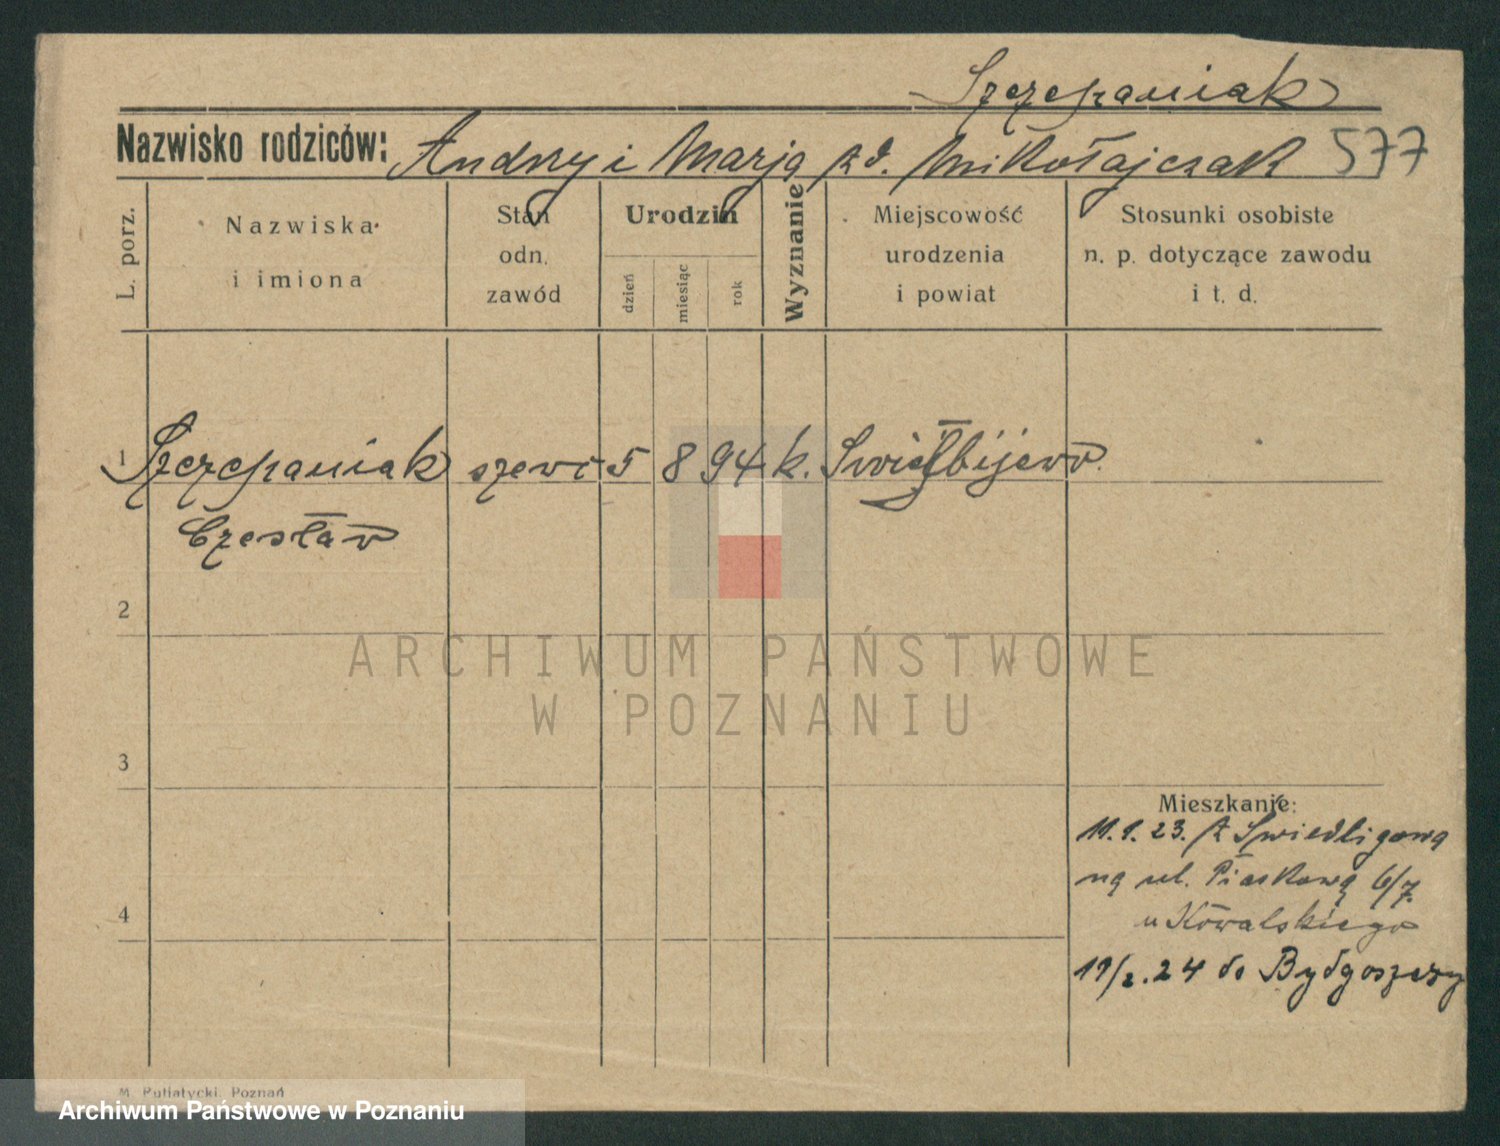 Szczepaniak
Nazwisko rodziców: Andrzy i Marja zd. Mikołajczak 577
L. porz.
Nazwiska
i imiona
Stan
odn.
zawód
Urodzin
dzień
miesiąc
rok
Wyznanie
Miejscowość
urodzenia
i powiat
Stosunki osobiste
n. p. dotyczące zawodu
i t. d.
1 Szczepaniak szewc 5 8 94 k.
Czesław
2
ARCHIWUM PAŃSTWOWE
W POZNANIU
3
Mieszkanie:
11.1.23. z
na ul. Piaskową 6/7.
4
u Kowalskiego
19/2.24 do Bydgoszczy
M. Putiatycki, Poznań
Archiwum Państwowe w Poznaniu